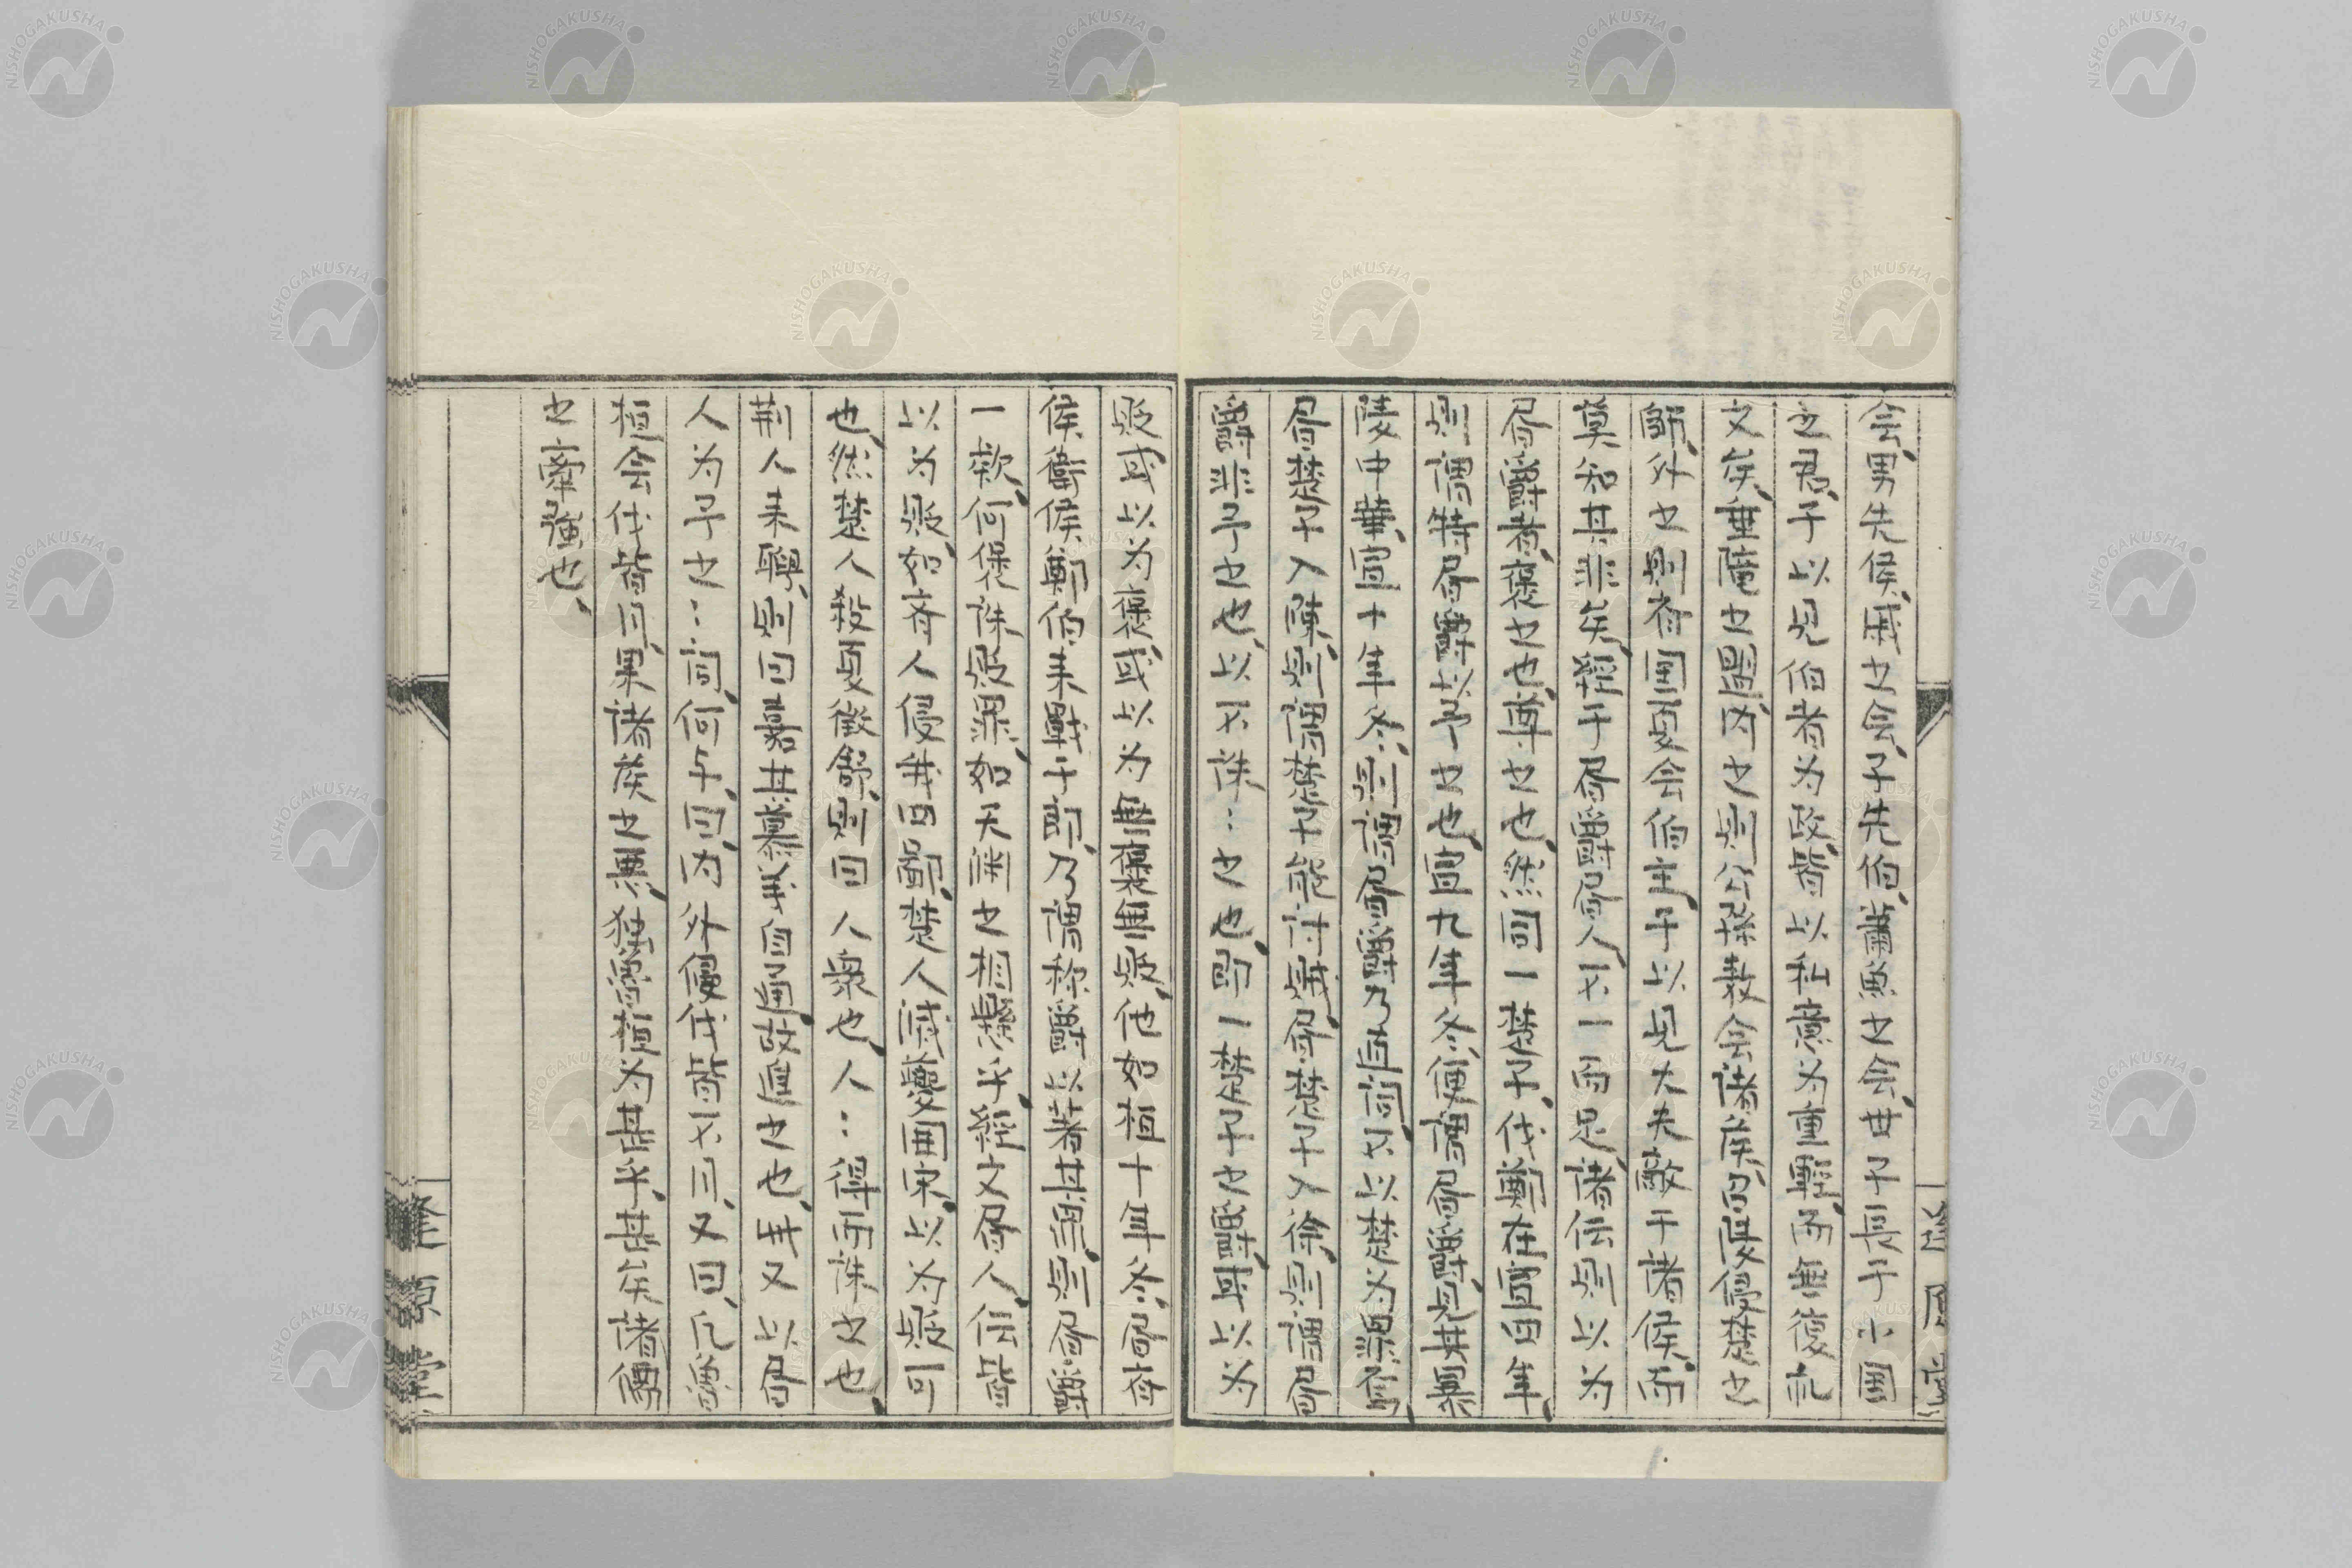 会、男先侯、戚之会、子先伯、蕭魚之会、世子長于小国
之君、于以見伯者為政、皆以私意為重軽、而無復礼
文矣、垂隴之盟、内之則公孫敖会諸侯、召陵侵楚之
師、外之則斉国夏会伯主、于以見大夫敵于諸侯、而
莫知其非矣、経于居爵居人、不一而足、諸伝則以為
居爵者、褒之也、尊之也、然同一楚子、伐鄭在宣四年、
則謂特居爵以予之也、宣九年冬、便謂居爵、見其暴
陵中華、宣十年冬、則謂居爵乃直詞、不以楚為罪焉、
居楚子入陳、則謂楚子能討賊、居楚子入徐、則謂居
爵非予之也、以不誅〻之也、即一楚子之爵、或以為
貶、或以為褒、或以為無褒無貶、他如桓十年冬、居斉
侯衛侯鄭伯来戦于郎、乃謂称爵以著其罪、則居爵
一款、何褒誅貶罪、如天淵之相懸乎、経文居人、伝皆
以為貶、如斉人侵我西鄙、楚人滅夔囲宋、以為貶可
也、然楚人殺夏徴舒、則曰人衆也、人〻得而誅之也、
荆人来聘、則曰嘉其慕義自通、故進之也、此又以居
人為予之〻詞、何与、曰内外侵伐皆不月、又曰、凡魯
桓会伐皆月、果諸侯之悪、独魯桓為甚乎、甚矣諸伝
之牽強也、
隆源堂